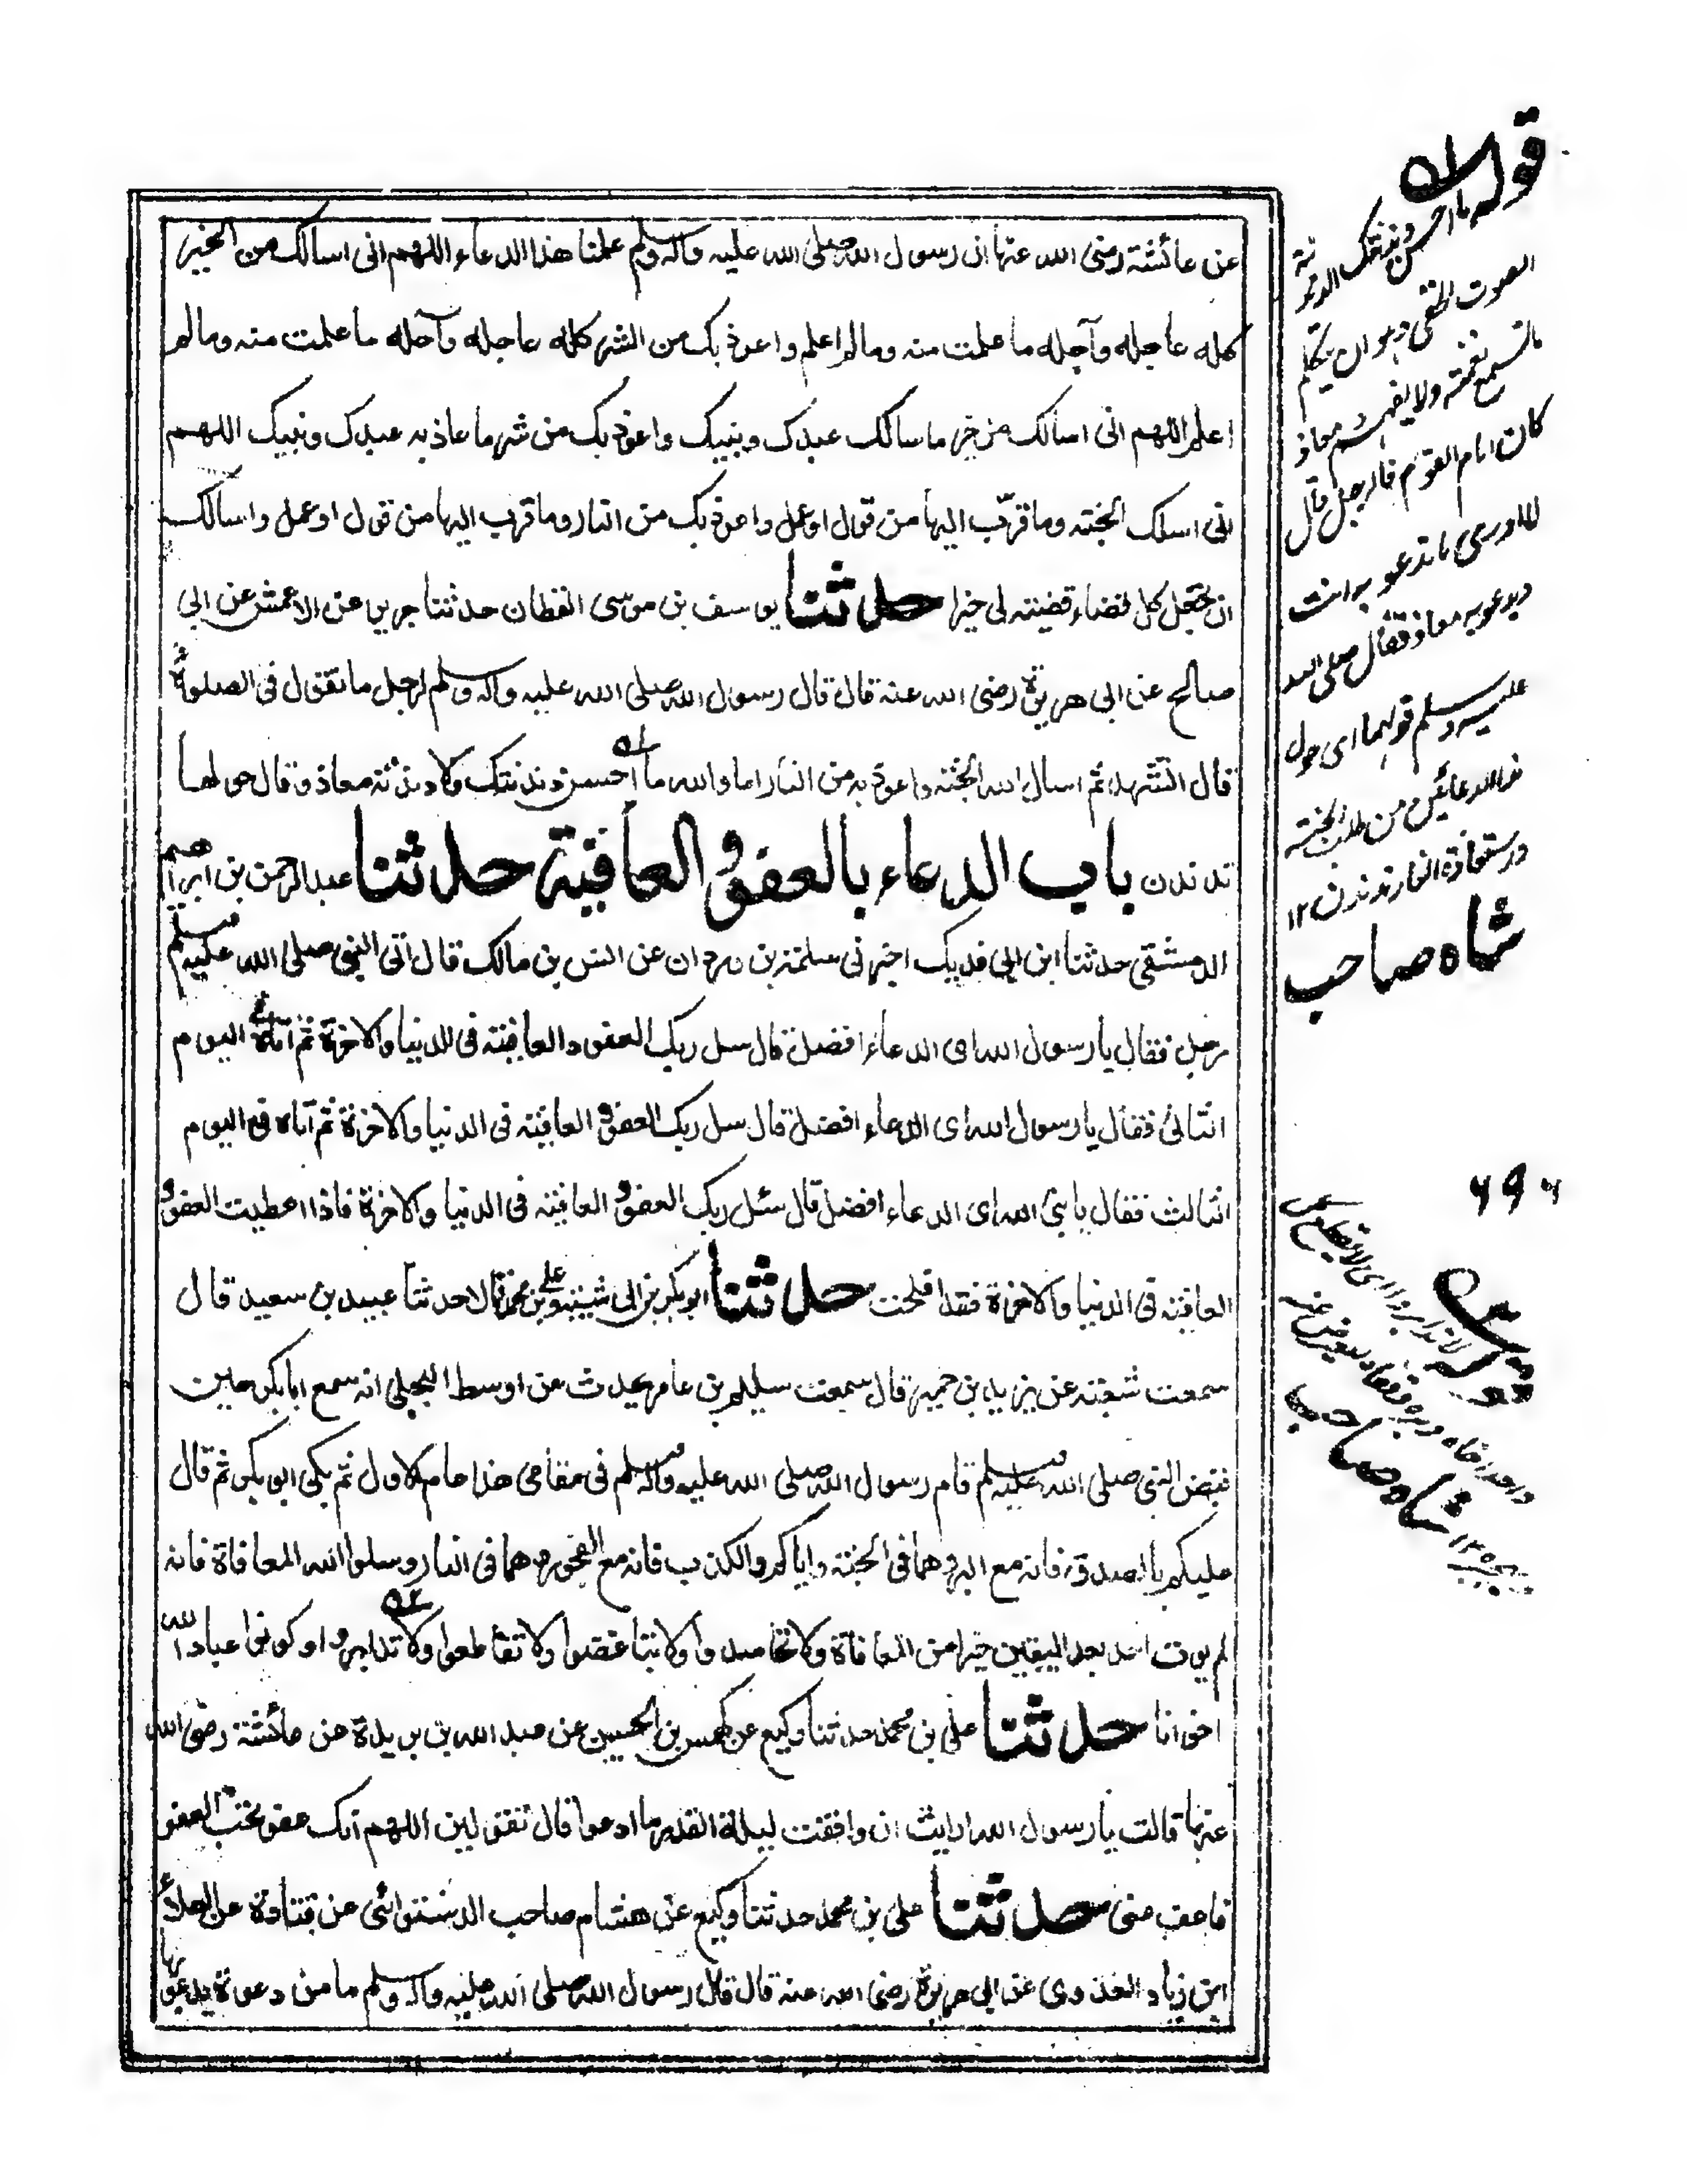 عن عائشة رضى الله عنها ان رسول الله صلى الله عليه وآله وسلم علمنا هذا الدعاء اللهم انى اسالك من الخير
كله عاجله وآجله ما علمت منه وما لم اعلم واعوذ بك من الشر كله عاجله وآجله ما علمت منه وما لم
اعلم اللهم انى اسالك من خير ما سالك عبدك ونبيك واعوذ بك من شر ما عاذ به عبدك ونبيك اللهم
انى اسالك الجنة وما قرّب اليها من قول او عمل واعوذ بك من النار وما قرب اليها من قول او عمل واسالك
ان تجعل كل قضاء قضيته لى خيرا حدثنا يوسف بن موسى القطان حدثنا جرير عن الاعمش عن ابى
صالح عن ابى هريرة رضى الله عنه قال قال رسول الله صلى الله عليه وآله وسلم لرجل ما تقول فى الصلوة
قال التشهد ثم اسال الله الجنة واعوذ به من النار اما والله ما احسن دندنتك ولا دندنة معاذ فقال حولها
تدندن باب الدعاء بالعفو والعافية حدثنا عبد الرحمن بن ابراهيم
الدمشقى حدثنا ابن ابى فديك اخبرنى سلمة بن وردان عن انس بن مالك قال اتى النبى صلى الله عليه وسلم
رجل فقال يا رسول الله اى الدعاء افضل قال سل ربك العفو والعافية فى الدنيا والاخرة ثم آتاه فى اليوم
الثانى فقال يا رسول الله اى الدعاء افضل قال سل ربك العفو و العافية فى الدنيا والاخرة ثم آتاه فى اليوم
الثالث فقال يا نبى الله اى الدعاء افضل قال سل ربك العفو و العافية فى الدنيا والاخرة فاذا اعطيت العفو و
العافية فى الدنيا والاخرة فقد افلحت حدثنا ابو بكر بن ابى شيبة وعلى بن محمد قالا حدثنا عبيد بن سعيد قال
سمعت شعبة عن يزيد بن خمير قال سمعت سليم بن عامر يحدث عن اوسط البجلى انه سمع ابا بكر حين
قبض النبى صلى الله عليه وسلم قام رسول الله صلى الله عليه وآله وسلم فى مقامى هذا عام الاول ثم بكى ابو بكر ثم قال
عليكم بالصدق فانه مع البر وهما فى الجنة واياكم والكذب فانه مع الفجور وهما فى النار وسلوا الله المعافاة فانه
لم يوت احد بعد اليقين خيرا من المعافاة ولا تحاسدوا ولا تباغضوا ولا تقاطعوا ولا تدابروا وكونوا عباد الله
اخوانا حدثنا على بن محمد حدثنا وكيع عن كهمس بن الحسين عن عبد الله بن بريدة عن عائشة رضى الله
عنها قالت يا رسول الله ارايت ان وافقت ليلة القدر ما ادعوا قال تقولين اللهم انك عفو تحب العفو
فاعف عنى حدثنا على بن محمد حدثنا وكيع عن هشام صاحب الدستوائى عن قتادة عن العلاء
ابن زياد العدوى عن ابى هريرة رضى الله عنه قال قال رسول الله صلى الله عليه وآله وسلم ما من دعوة يدعو بها
قوله ما احسن دندنتك الدندنة
الصوت الخفى وهو ان يتكلم
ما تسمع نغمته ولا يفهم ومعاذ
كان امام القوم فالرجل قال
لا ادرى ما تدعو به انت
ويدعو به معاذ فقال صلى الله
عليه وسلم قولهما اى حول
هذا الدعائين من طلب الجنة
واستعاذة النار ندندن ١٢
شاه صاحب
قوله لا تدابروا اى لا يقطع
شاه صاحب